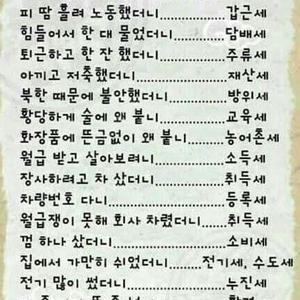 피 땀 흘려 노동했더니..............갑근세
힘들어서 한 대 물었더니........담배세
퇴근하고 한 잔 했더니...........주류세
아끼고 저축했더니.................재산세
북한 때문에 불안했더니.........방위세
황당하게 술에 왜 붙니...........교육세
화장품에 뜬금없이 왜 붙니...농어촌세
월급 받고 살아보려니...........소득세
장사하려고 차 샀더니...........취득세
차량번호 다니......................등록세
월급쟁이 못해 회사 차렸더니...취득세
껌 하나 샀더니.....................소비세
집에서 가만히 쉬었더니........전기세, 수도세
전기 많이 썼더니.................누진세